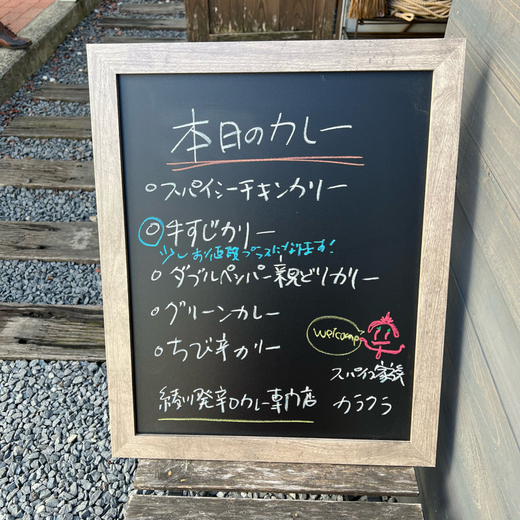 本日のカレー
○スパイシーチキンカリー
○牛すじカリー
少しお値段プラスになります!
○ダブルペッパー親どりカリー
○グリーンカレー
○ちび辛カリー
welcome
スパイス家族
カラクラ
綾川発辛口カレー専門店